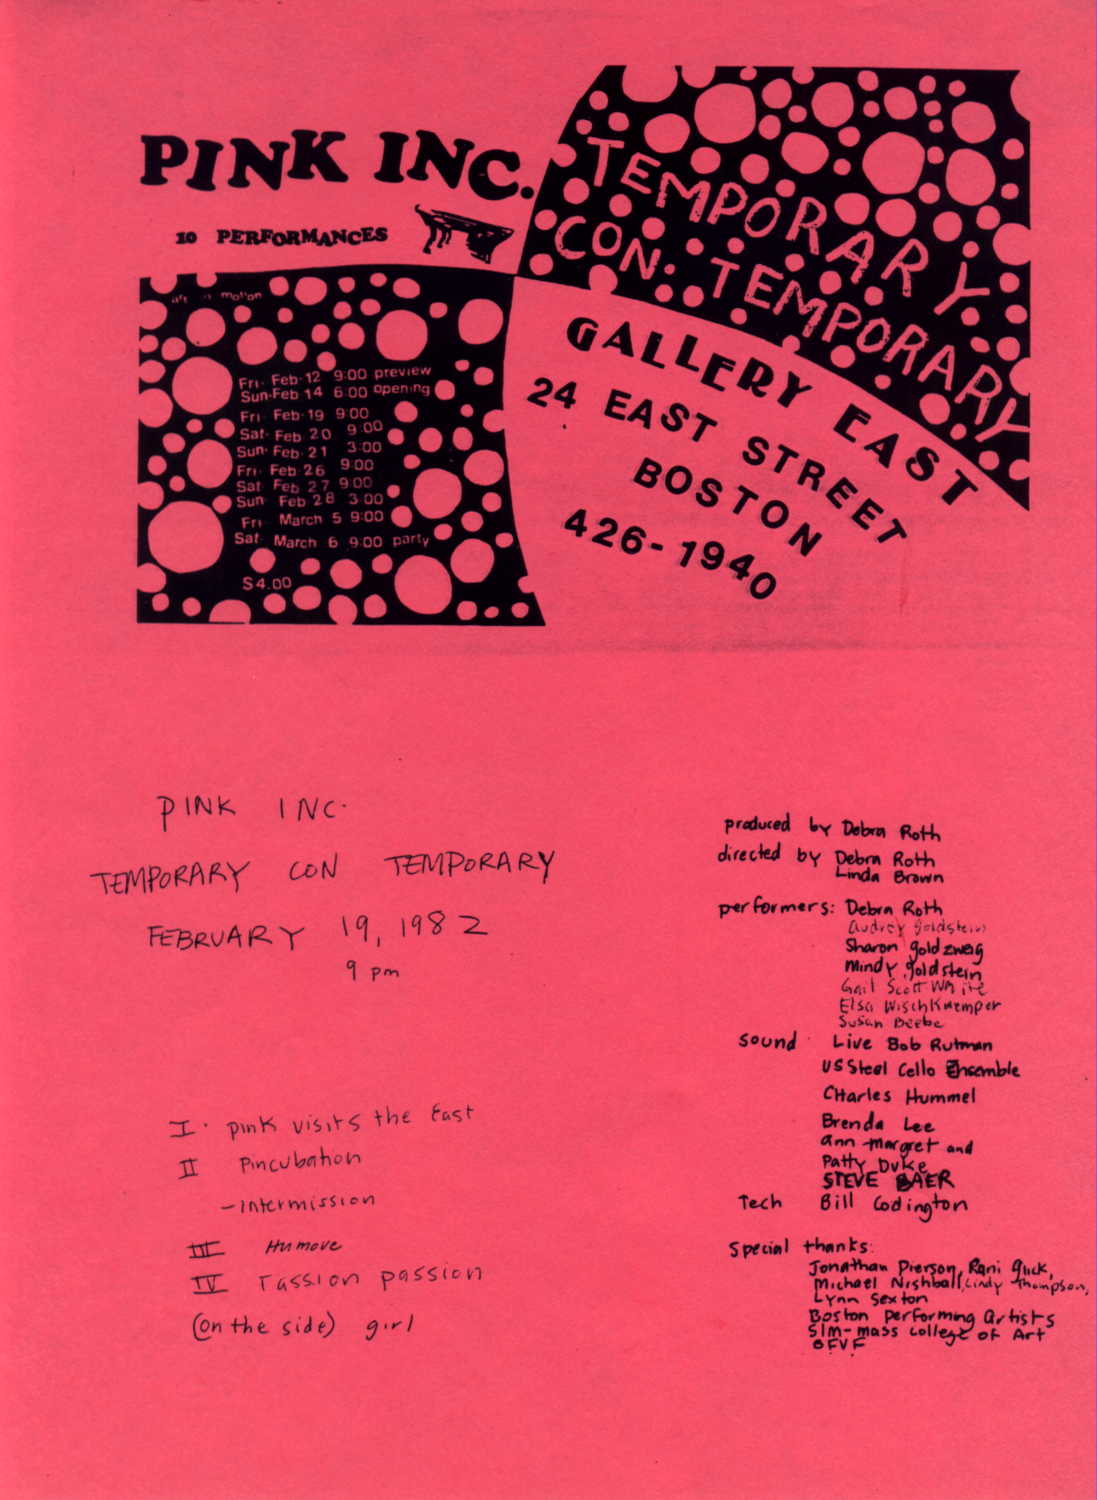 PINK INC.
10 PERFORMANCES
TEMPORARY
CON. TEMPORARY
art in motion
Fri. Feb. 12 9:00 preview
Sun. Feb 14 6:00 opening
Fri. Feb. 19 9:00
Sat. Feb 20 9:00
Sun. Feb. 21 3:00
Fri. Feb 26 9:00
Sat. Feb 27 9:00
Sun Feb 28 3:00
Fri. March 5 9:00
Sat. March 6 9:00 party
$4.00
GALLERY EAST
24 EAST STREET
BOSTON
426-1940
PINK INC.
TEMPORARY CON TEMPORARY
FEBRUARY 19, 1982
9 pm
I. pink visits the East
II Pincubation
-intermission
III Humove
IV Tassion passion
(on the side) girl
produced by Debra Roth
directed by Debra Roth
Linda Brown
performers: Debra Roth
Audrey Goldstein
Sharon Goldzweig
Mindy Goldstein
Gail Scott White
Elsa Wischkaemper
Susan Beebe
Sound Live Bob Rutman
US Steel Cello Ensemble
Charles Hummel
Brenda Lee
ann margret and
Patty Duke
STEVE BAER
Tech Bill Codington
Special thanks:
Jonathan Pierson, Rani Glick,
Michael Nishball, Lindy Thompson,
Lynn Sexton
Boston Performing Artists
SIM-mass college of Art
BFVF